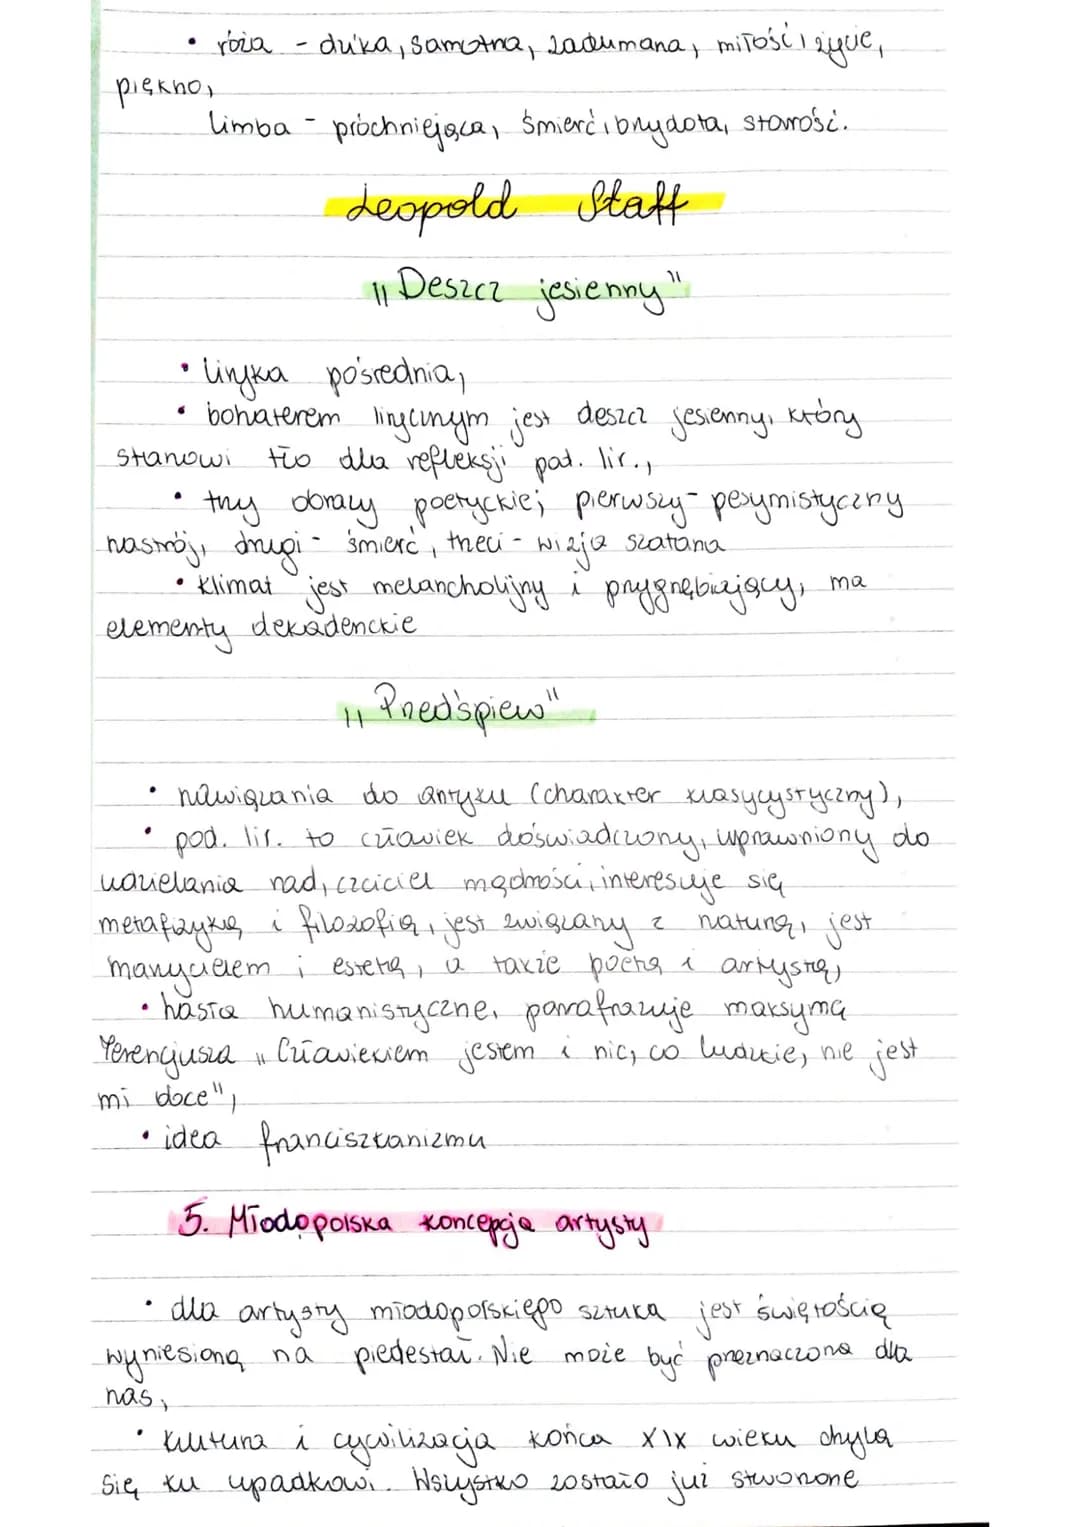 • róża - dzika, samotna, zadumana, miłość i życie,
piękno,
limba - próchniejąca, śmierć i brzydota, starość.
Leopold Staff
"Deszcz jesienny"
• liryka pośrednia,
• bohaterem lirycznym jest deszcz jesienny, który
stanowi tło dla refleksji pod. lir.,
• trzy obrazy poetyckie; pierwszy - pesymistyczny
nastrój, drugi - śmierć, trzeci - wizja szatana
• klimat jest melancholijny i przygnębiający, ma
elementy dekadenckie
"Przedśpiew"
• nawiązania do antyku (charakter klasycystyczny),
• pod. lir. to człowiek doświadczony, uprawniony do
udzielania rad, czciciel mądrości, interesuje się
metafizyką i filozofią, jest związany z naturą, jest
marzycielem i estetą, a także poetą i artystą,
• hasła humanistyczne, parafrazuje maksymą
Terencjusza "Człowiekiem jestem i nic, co ludzkie, nie jest
mi obce",
• idea franciszkanizmu
5. Młodopolska koncepcja artysty
• dla artysty młodopolskiego sztuka jest świętością
wyniesioną na piedestał. Nie może być przeznaczona dla
nas,
• kultura i cywilizacja końca XIX wieku chyla
się ku upadkowi. Wszystko zostało już stworzone